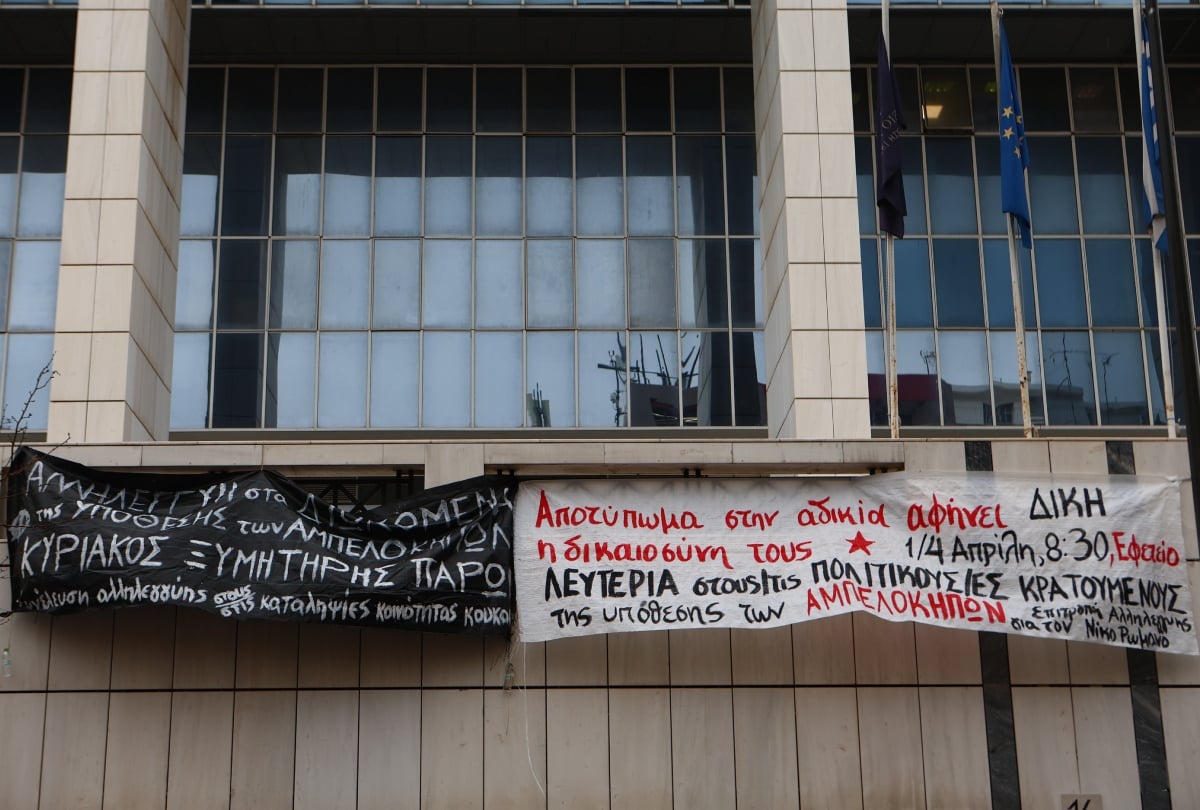 Αλληλεγγύη στα Διωκόμενα
της ΥΠΟΘΕΣΗΣ των ΑΜΠΕΛΟΚΗΠΩΝ
ΚΥΡΙΑΚΟΣ ΞΥΜΗΤΗΡΗΣ ΠΑΡΩ
νέλευση αλληλεγγύης στους στις καταληψίες κοινότητας κουκα
Αποτύπωμα στην αδικία αφήνει
η δικαιοσύνη τους
ΔΙΚΗ
1/4 Απρίλη, 8:30, Εφετείο
ΛΕΥΤΕΡΙΑ στους/τις ΠΟΛΙΤΙΚΟΥΣ/ΕΣ ΚΡΑΤΟΥΜΕΝΟΥΣ
της υπόθεσης των ΑΜΠΕΛΟΚΗΠΩΝ
Επιτροπή Αλληλεγγύης
για τον Νίκο Ρωμανό